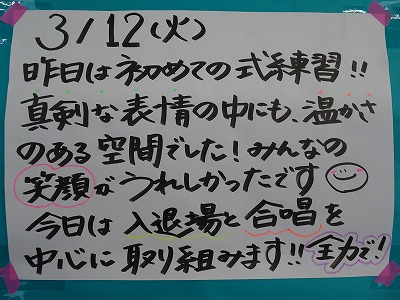 3/12(火)
昨日は初めての式練習!!
真剣な表情の中にも、温かさ
のある空間でした!みんなの
笑顔がうれしかったです
今日は入退場と合唱を
中心に取り組みます!!全力で!